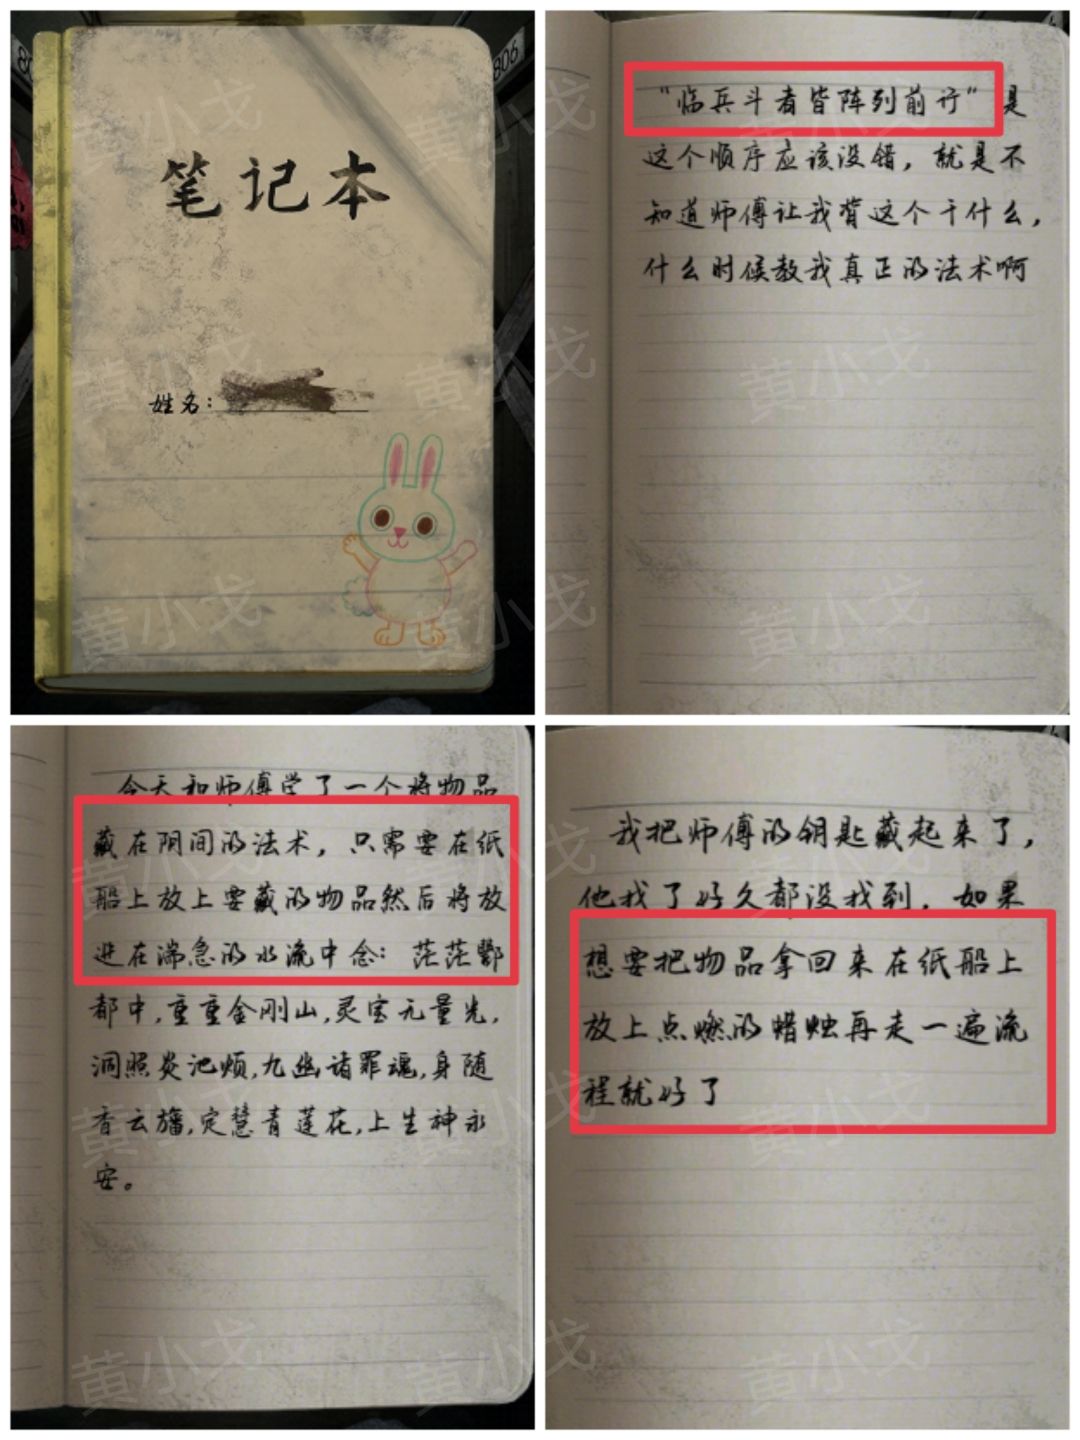 806
笔记本
姓名:
"临兵斗者皆阵列前行"是
这个顺序应该没错，就是不
知道师傅让我背这个干什么，
什么时候教我真正的法术啊
今天和师傅学了一个将物品
藏在阴间的法术，只需要在纸
船上放上要藏的物品然后将放
进在湍急的水流中念：茫茫酆
都中,重重金刚山,灵宝无量光,
洞照炎池烦,九幽诸罪魂,身随
香云旛,定慧青莲花,上生神永
安。
我把师傅的钥匙藏起来了，
他找了好久都没找到．如果
想要把物品拿回来在纸船上
放上点燃的蜡烛再走一遍流
程就好了
黄小戈